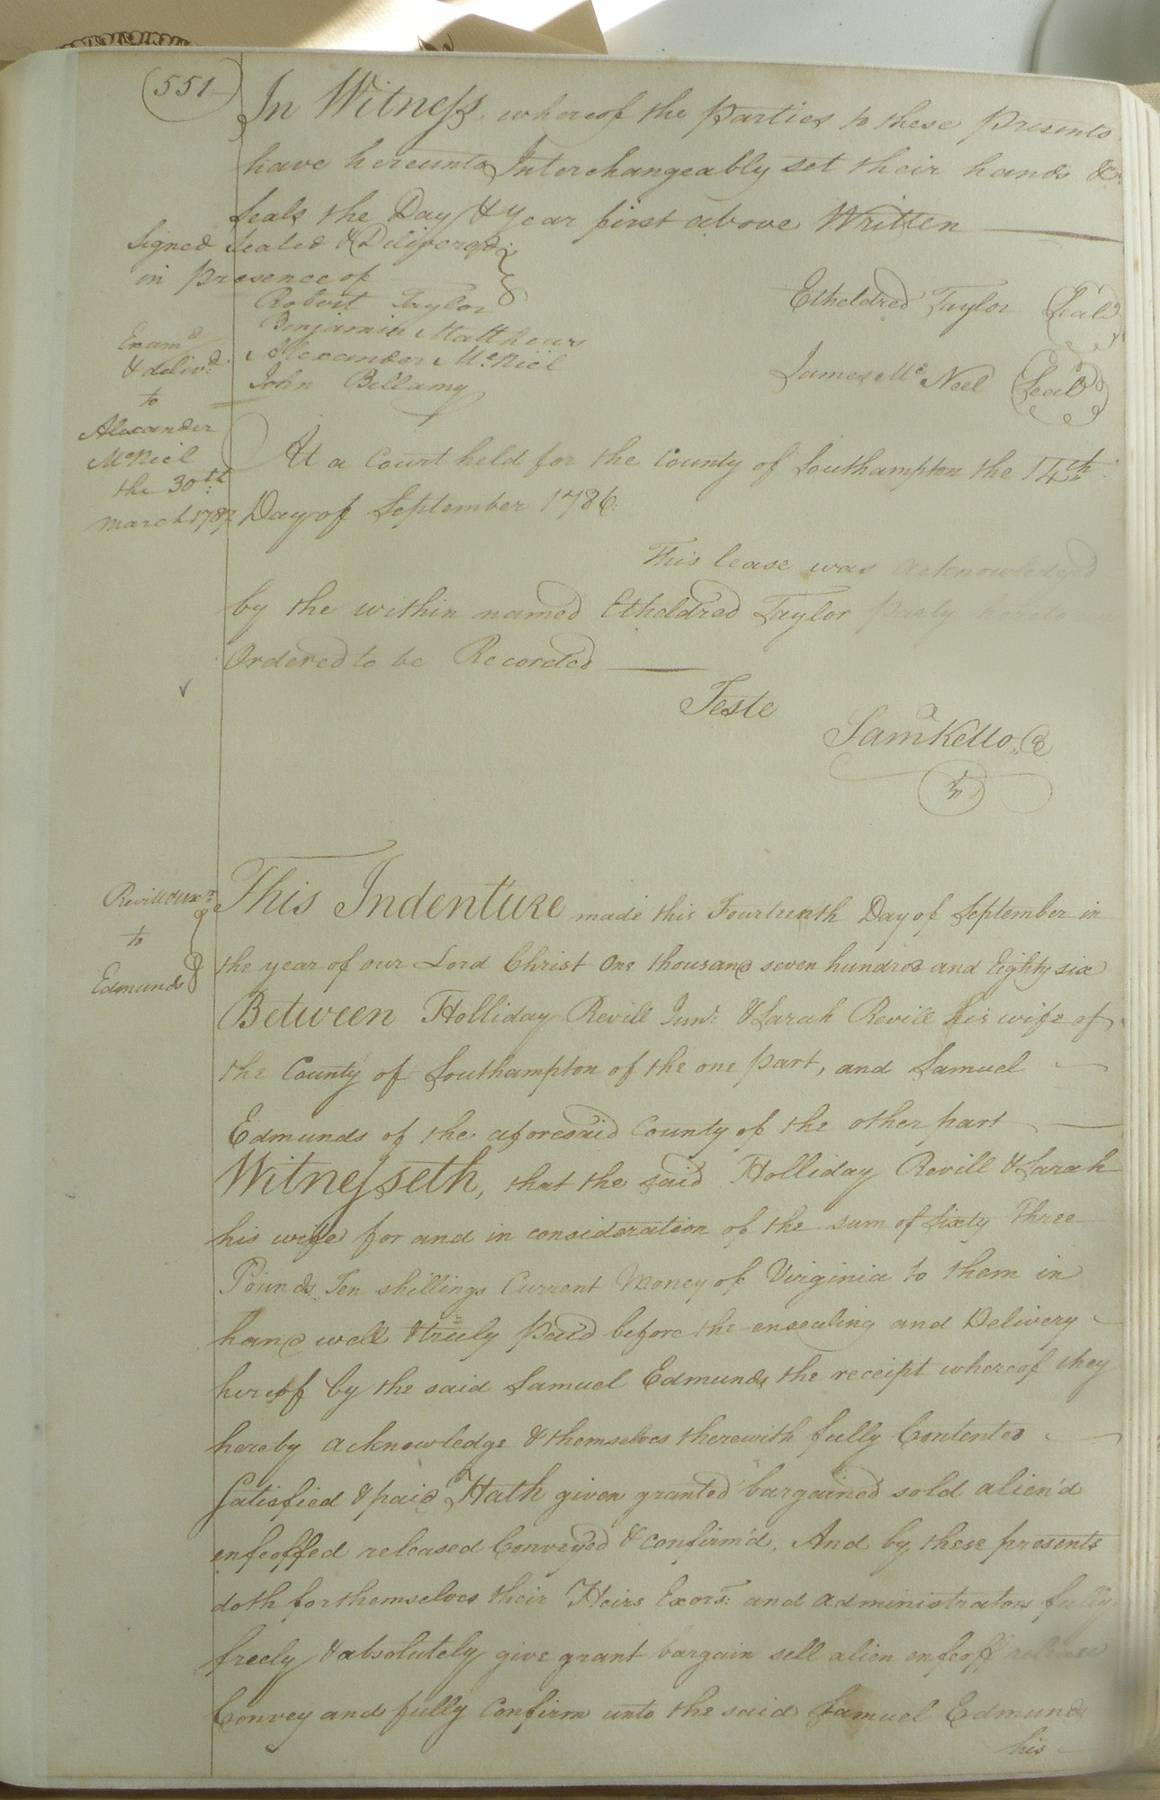 (551)
In Witness whereof the Parties to these Presents
have hereunto Interchangeably set their hands &
Seals the Day & Year first above Written
Signed Sealed & Deliver'd
in Presence of
Robert Taylor
Benjamin Matthews
Alexander McNiel
John Bellamy
Etheldred Taylor (Seal)
James Mc Neel (Seal)
Exam'd
& deliv'd
to
Alexander
McNiel
the 30th
March 1787
At a Court held for the County of Southampton the 14th
Day of September 1786.
This lease was acknowledged
by the within named Etheldred Taylor party hereto
Ordered to be Recorded
Teste
Saml Kello
Revill & ux
to
Edmunds
This Indenture made this Fourteenth Day of September in
the year of our Lord Christ One thousand seven hundred and Eighty six
Between Holliday Revill Junr. & Sarah Revill his wife of
the County of Southampton of the one part, and Samuel
Edmunds of the aforesaid County of the other part
Witnesseth, that the said Holliday Revill & Sarah
his wife for and in consideration of the sum of Sixty Three
Pounds Ten shillings Current Money of Virginia to them in
hand well & truly Paid before the ensealing and Delivery
hereof by the said Samuel Edmunds the receipt whereof they
hereby acknowledge & themselves therewith fully Contented
Satisfied & paid Hath given granted bargained sold alien'd
enfeoffed released Convey'd & Confirm'd. And by these presents
doth for themselves their Heirs Exors: and administrators fully
freely & absolutely give grant bargain sell alien enfeoff release
Convey and fully Confirm unto the said Samuel Edmunds
his